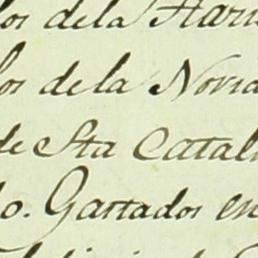 los de la Harin
los de la Novia
de Sta Catali
o. Gastados en